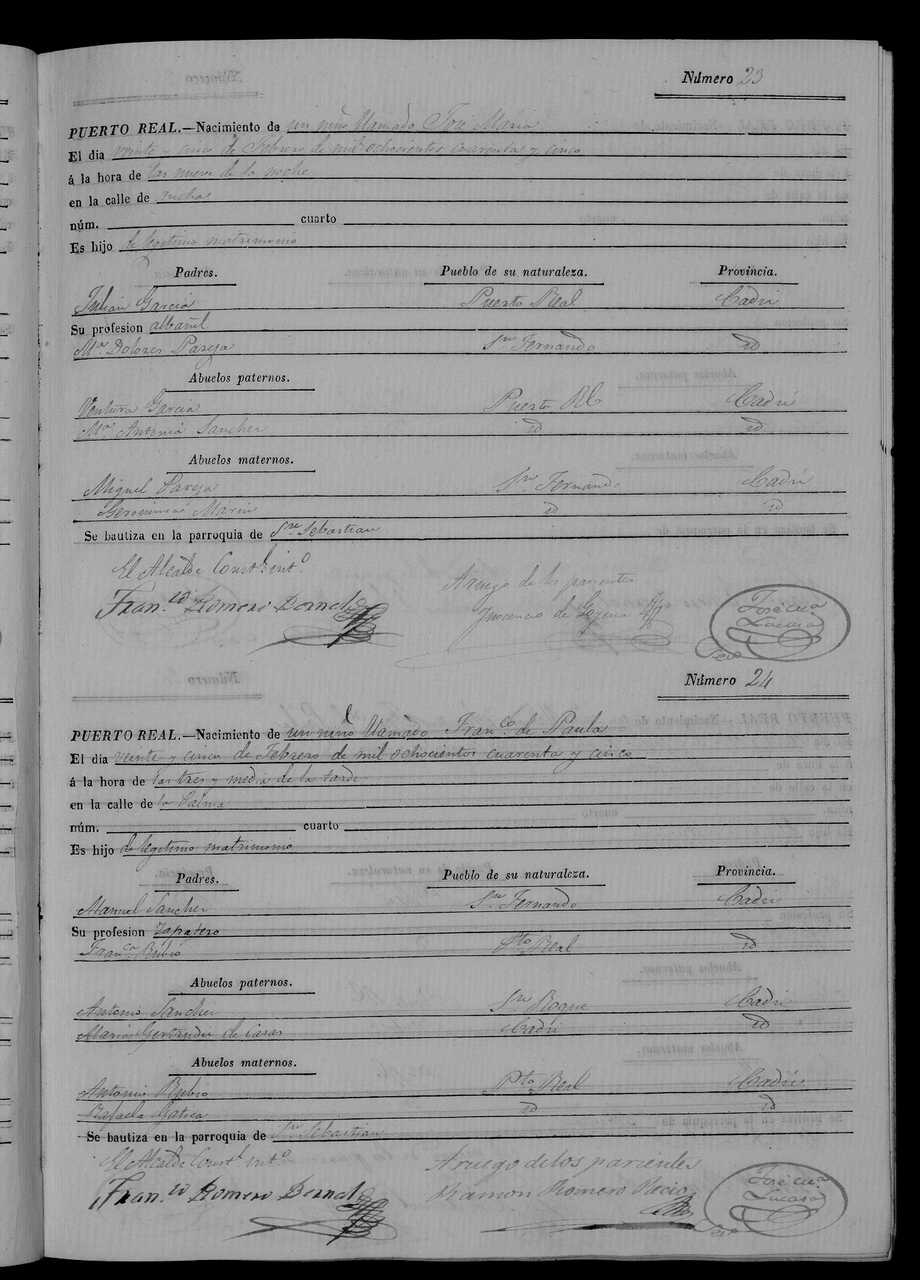 Número 23
PUERTO REAL.—Nacimiento de un niño llamado José María
El dia veinte y cinco de Febrero de mil ochocientos cuarenta y cinco
á la hora de las nueve de la noche
en la calle de ancha
núm. cuarto
Es hijo de legitimo matrimonio
Padres. Pueblo de su naturaleza. Provincia.
Julian Garcia Puerto Real Cadiz
Su profesion albañil
Mª Dolores Pareja Sn Fernando id
Abuelos paternos.
Ventura Garcia Puerto Rl Cadiz
Mª Antonia Sanchez id id
Abuelos maternos.
Miguel Pareja Sn Fernando Cadiz
Geronima Marin id id
Se bautiza en la parroquia de Sn Sebastian
El Alcalde Constl. intº
Fran.co Romero Bernal
A ruego de los parientes
José
Lucas
Número 24
PUERTO REAL.—Nacimiento de un niño llamado Franco de Paula
El dia veinte y cinco de Febrero de mil ochocientos cuarenta y cinco
á la hora de las tres y media de la tarde
en la calle de la Palma
núm. cuarto
Es hijo de legitimo matrimonio
Padres. Pueblo de su naturaleza. Provincia.
Manuel Sanchez Sn Fernando Cadiz
Su profesion Zapatero
Franca Rubio Pto Real id
Abuelos paternos.
Antonio Sanchez Sn Roque Cadiz
Maria Gertrudis de Casas Cadiz id
Abuelos maternos.
Antonio Rubio Pto Real Cadiz
Rafaela Gatica id id
Se bautiza en la parroquia de Sn Sebastian
El Alcalde Constl. intº
Fran.co Romero Bernal
A ruego de los parientes
Ramon Romero Recio
José
Lucas